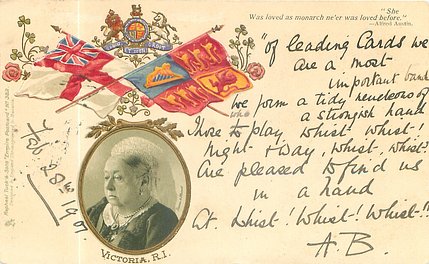 "She
Was loved as monarch ne'er was loved before."
—Alfred Austin.
"of leading Cards we
are a most
important band
we form a tidy nucleus of
a strongish hand
Those to play whist! whist!
Night & day, whist, whist!
Are pleased to find us
in a hand
At. Whist! Whist! Whist!!
A.B.
Feb 28th
1901.
Raphael Tuck & Sons "Empire" Postcard
VICTORIA, R.I.